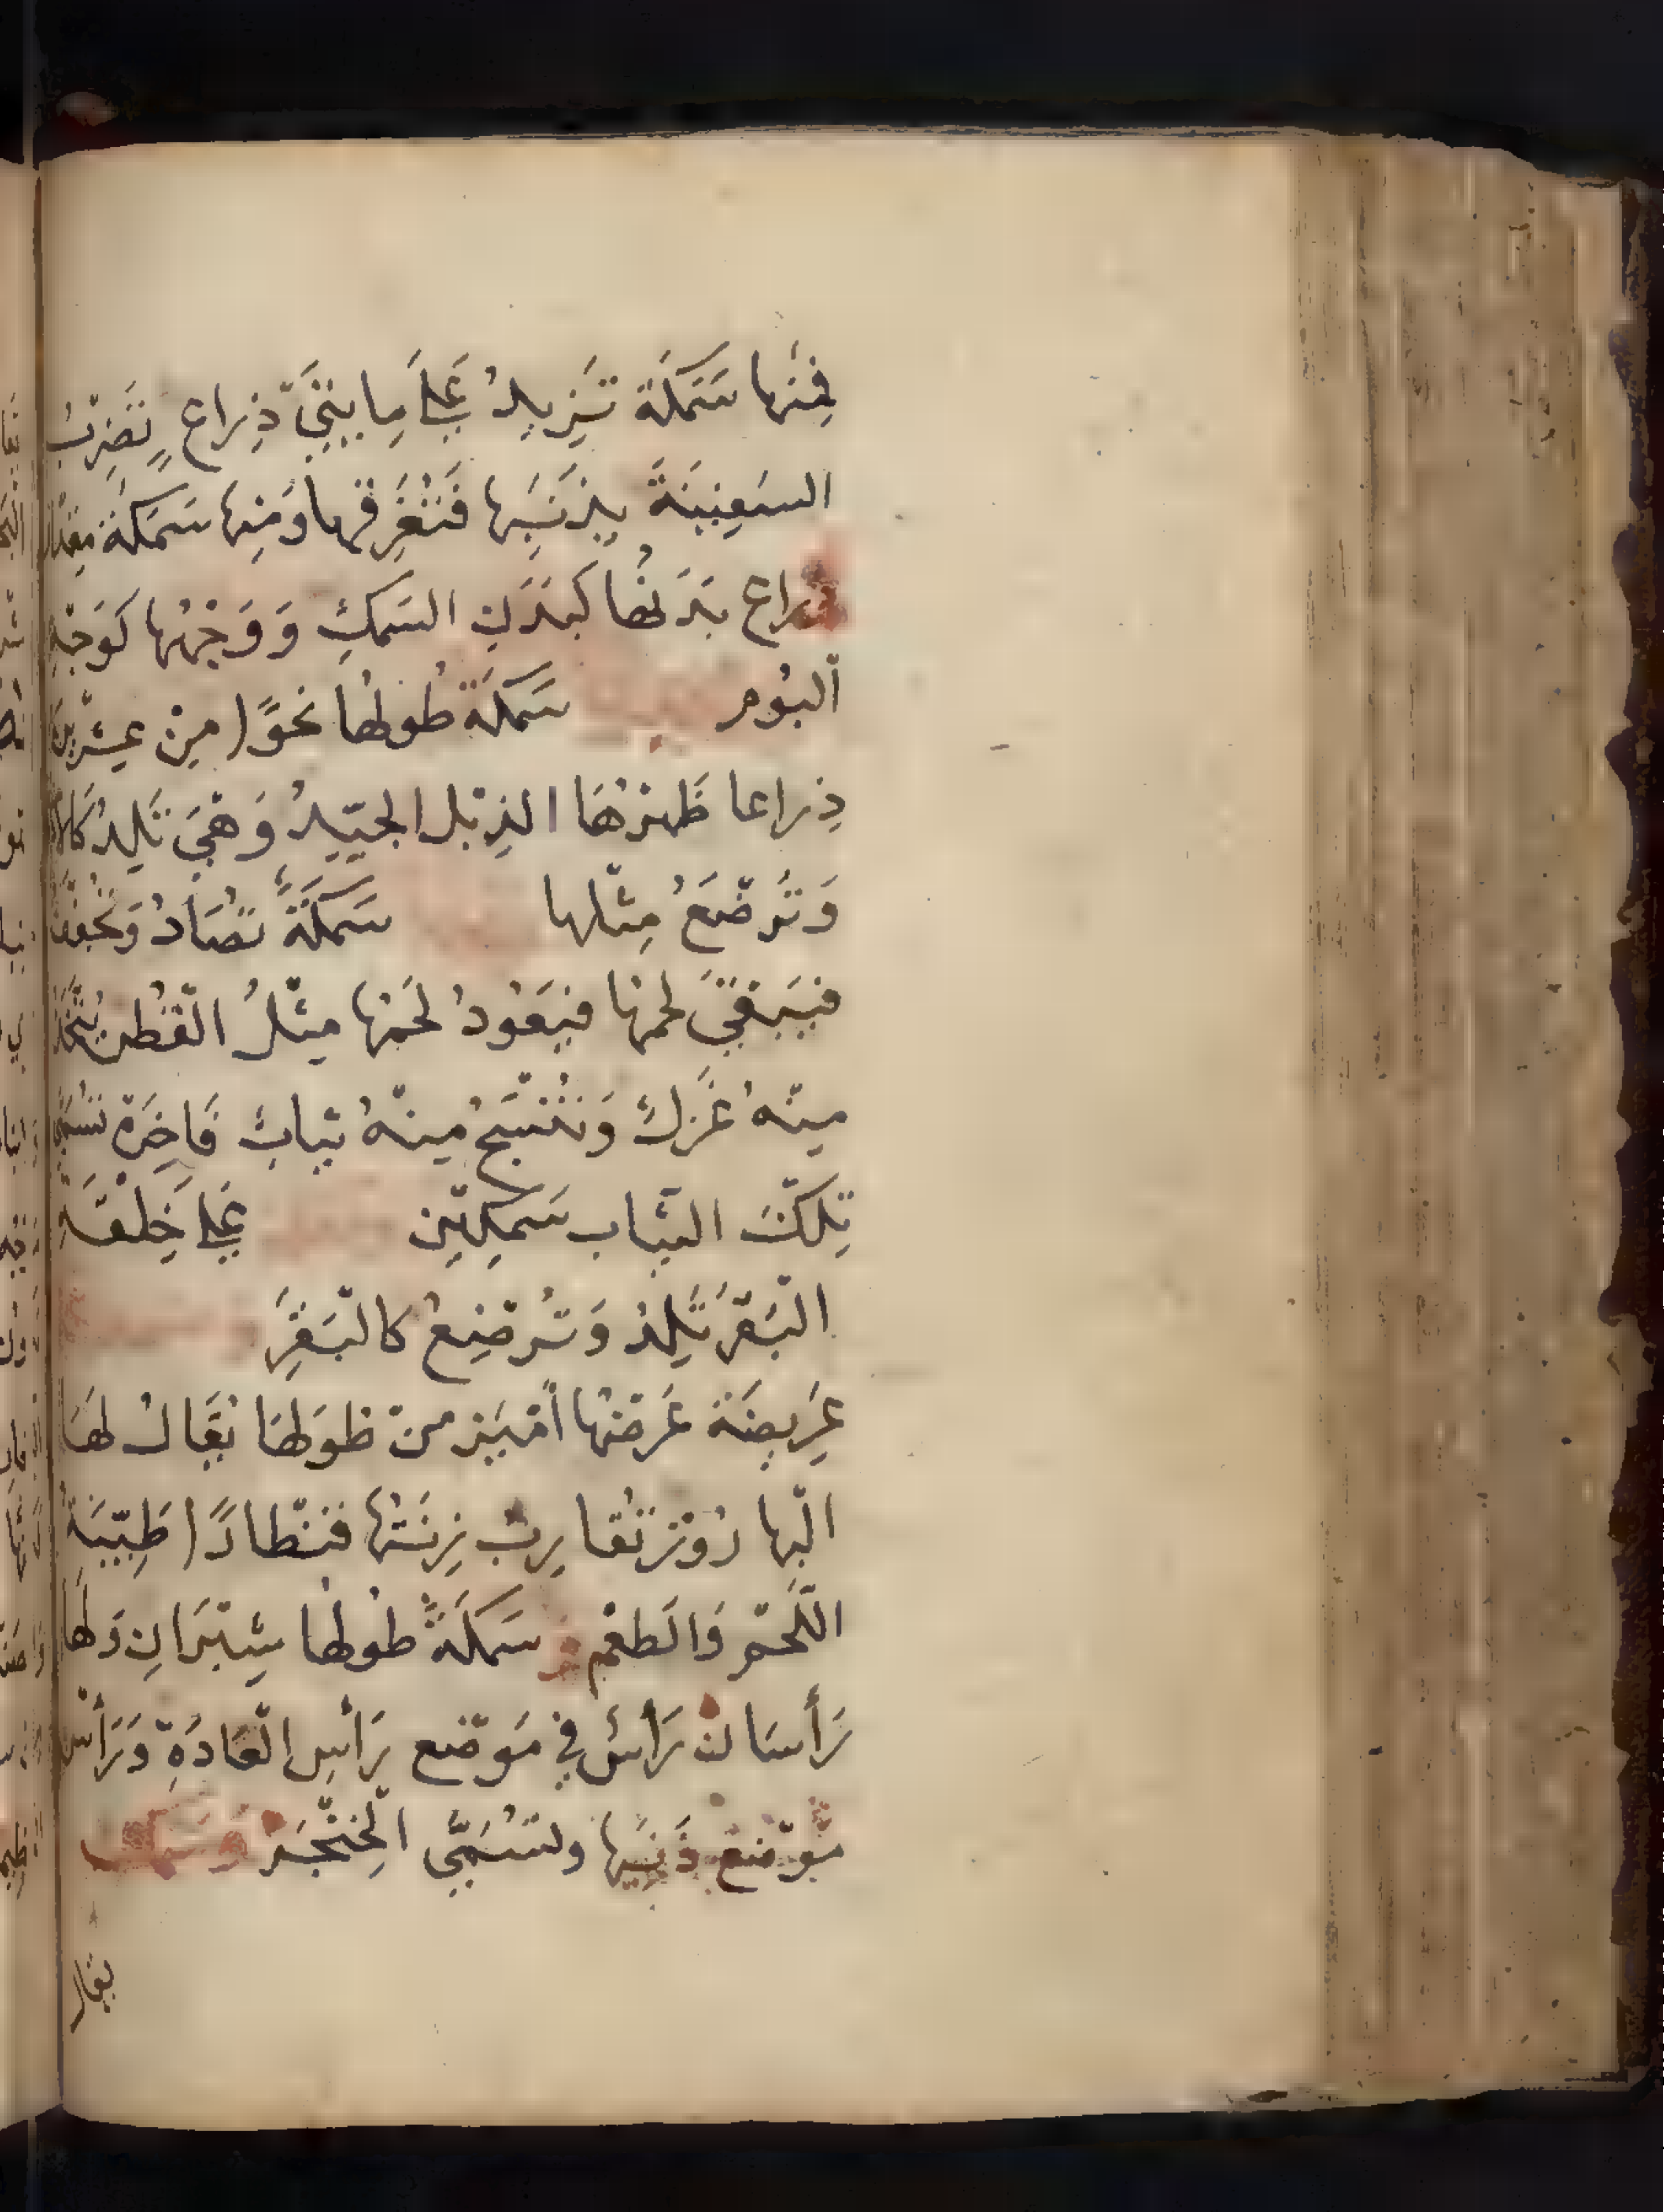 فَمِنها سَمَكَة تَزِيدُ عَلَى مِايتَي ذِراعٍ تَضرِبُ
السَفِينَةَ بِذَنَبِها فَتُغرِقها وَمِنها سَمَكَة مِقدَار
ذراع بَدَنُها كَبَدَنِ السَمَكِ وَوَجْهُها كَوَجْهِ
اَلبُوم سَمَكَة طُولُها نَحوًا مِنْ عِشرِينَ
ذِراعا ظَهرُهَا الذِبْل الجَيِّدُ وَهْيَ تَلِدُ
وَتُرضَعُ مِثلها سَمَكَةً تُصَادُ وَتُجَفَّفُ
فيَبقَى لحمها فيَعُودُ لَحمُها مِثلُ القُطن يُتَّخَذُ
مِنهُ غَزلٌ وَتُنسَجُ مِنهُ ثِيابٌ فَاخِرَة تُسَمَّى
تِلكَ الثِيَاب سَمَكِيّن عَلى خِلْقَةِ
البَقَرِ تَلِدُ وَتُرضِعُ كَالبَقَرِ
عَرِيضَة عَرضُها أَميَز من طُولِهَا يُقَالُ لَهَا
البها رُوتز تُقارِبُ زِنَتُها قنطَارًا طَيِّبَةُ
اللَّحم وَالطَعْم وَ سَمَكَةٌ طُولُها شِبرَانِ وَلَها
رَأسَان رَأسٌ في مَوضع رَأسِ العَادَةِ وَرَأسٌ
مَوضِعَ ذَنَبِها ولتُسَمَّى الخِنجَر وَسَمَك
يقال